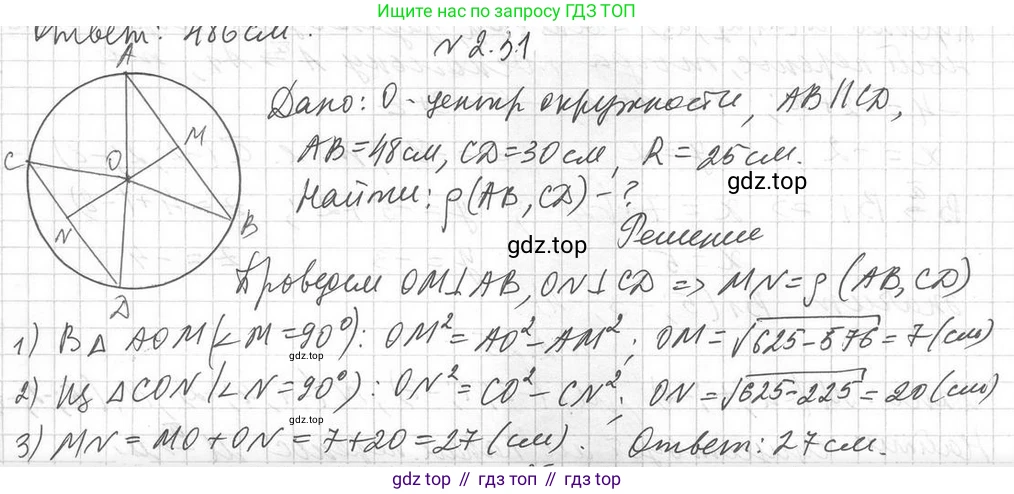 Ищите нас по запросу ГДЗ ТОП
Ответ: 486 см.
N 2.31
A
C
O
M
N
B
D
Дано: O - центр окружности, AB||CD,
AB=48см, CD=30см, R=25см.
gdz.top
Найти: ρ(AB,CD)-?
gdz.top
Решение
Проведем OM⊥AB, ON⊥CD => MN=ρ(AB,CD)
1) В △ AOM(∠M=90°): OM²=AO²-AM²; OM=√625-576=7(см)
gdz.top
2) Из △CON(∠N=90°): ON²=CO²-CN²; ON=√625-225=20(см)
gdz.top
3) MN=MO+ON=7+20=27(см). Ответ: 27см.
gdz top // гдз топ // gdz top